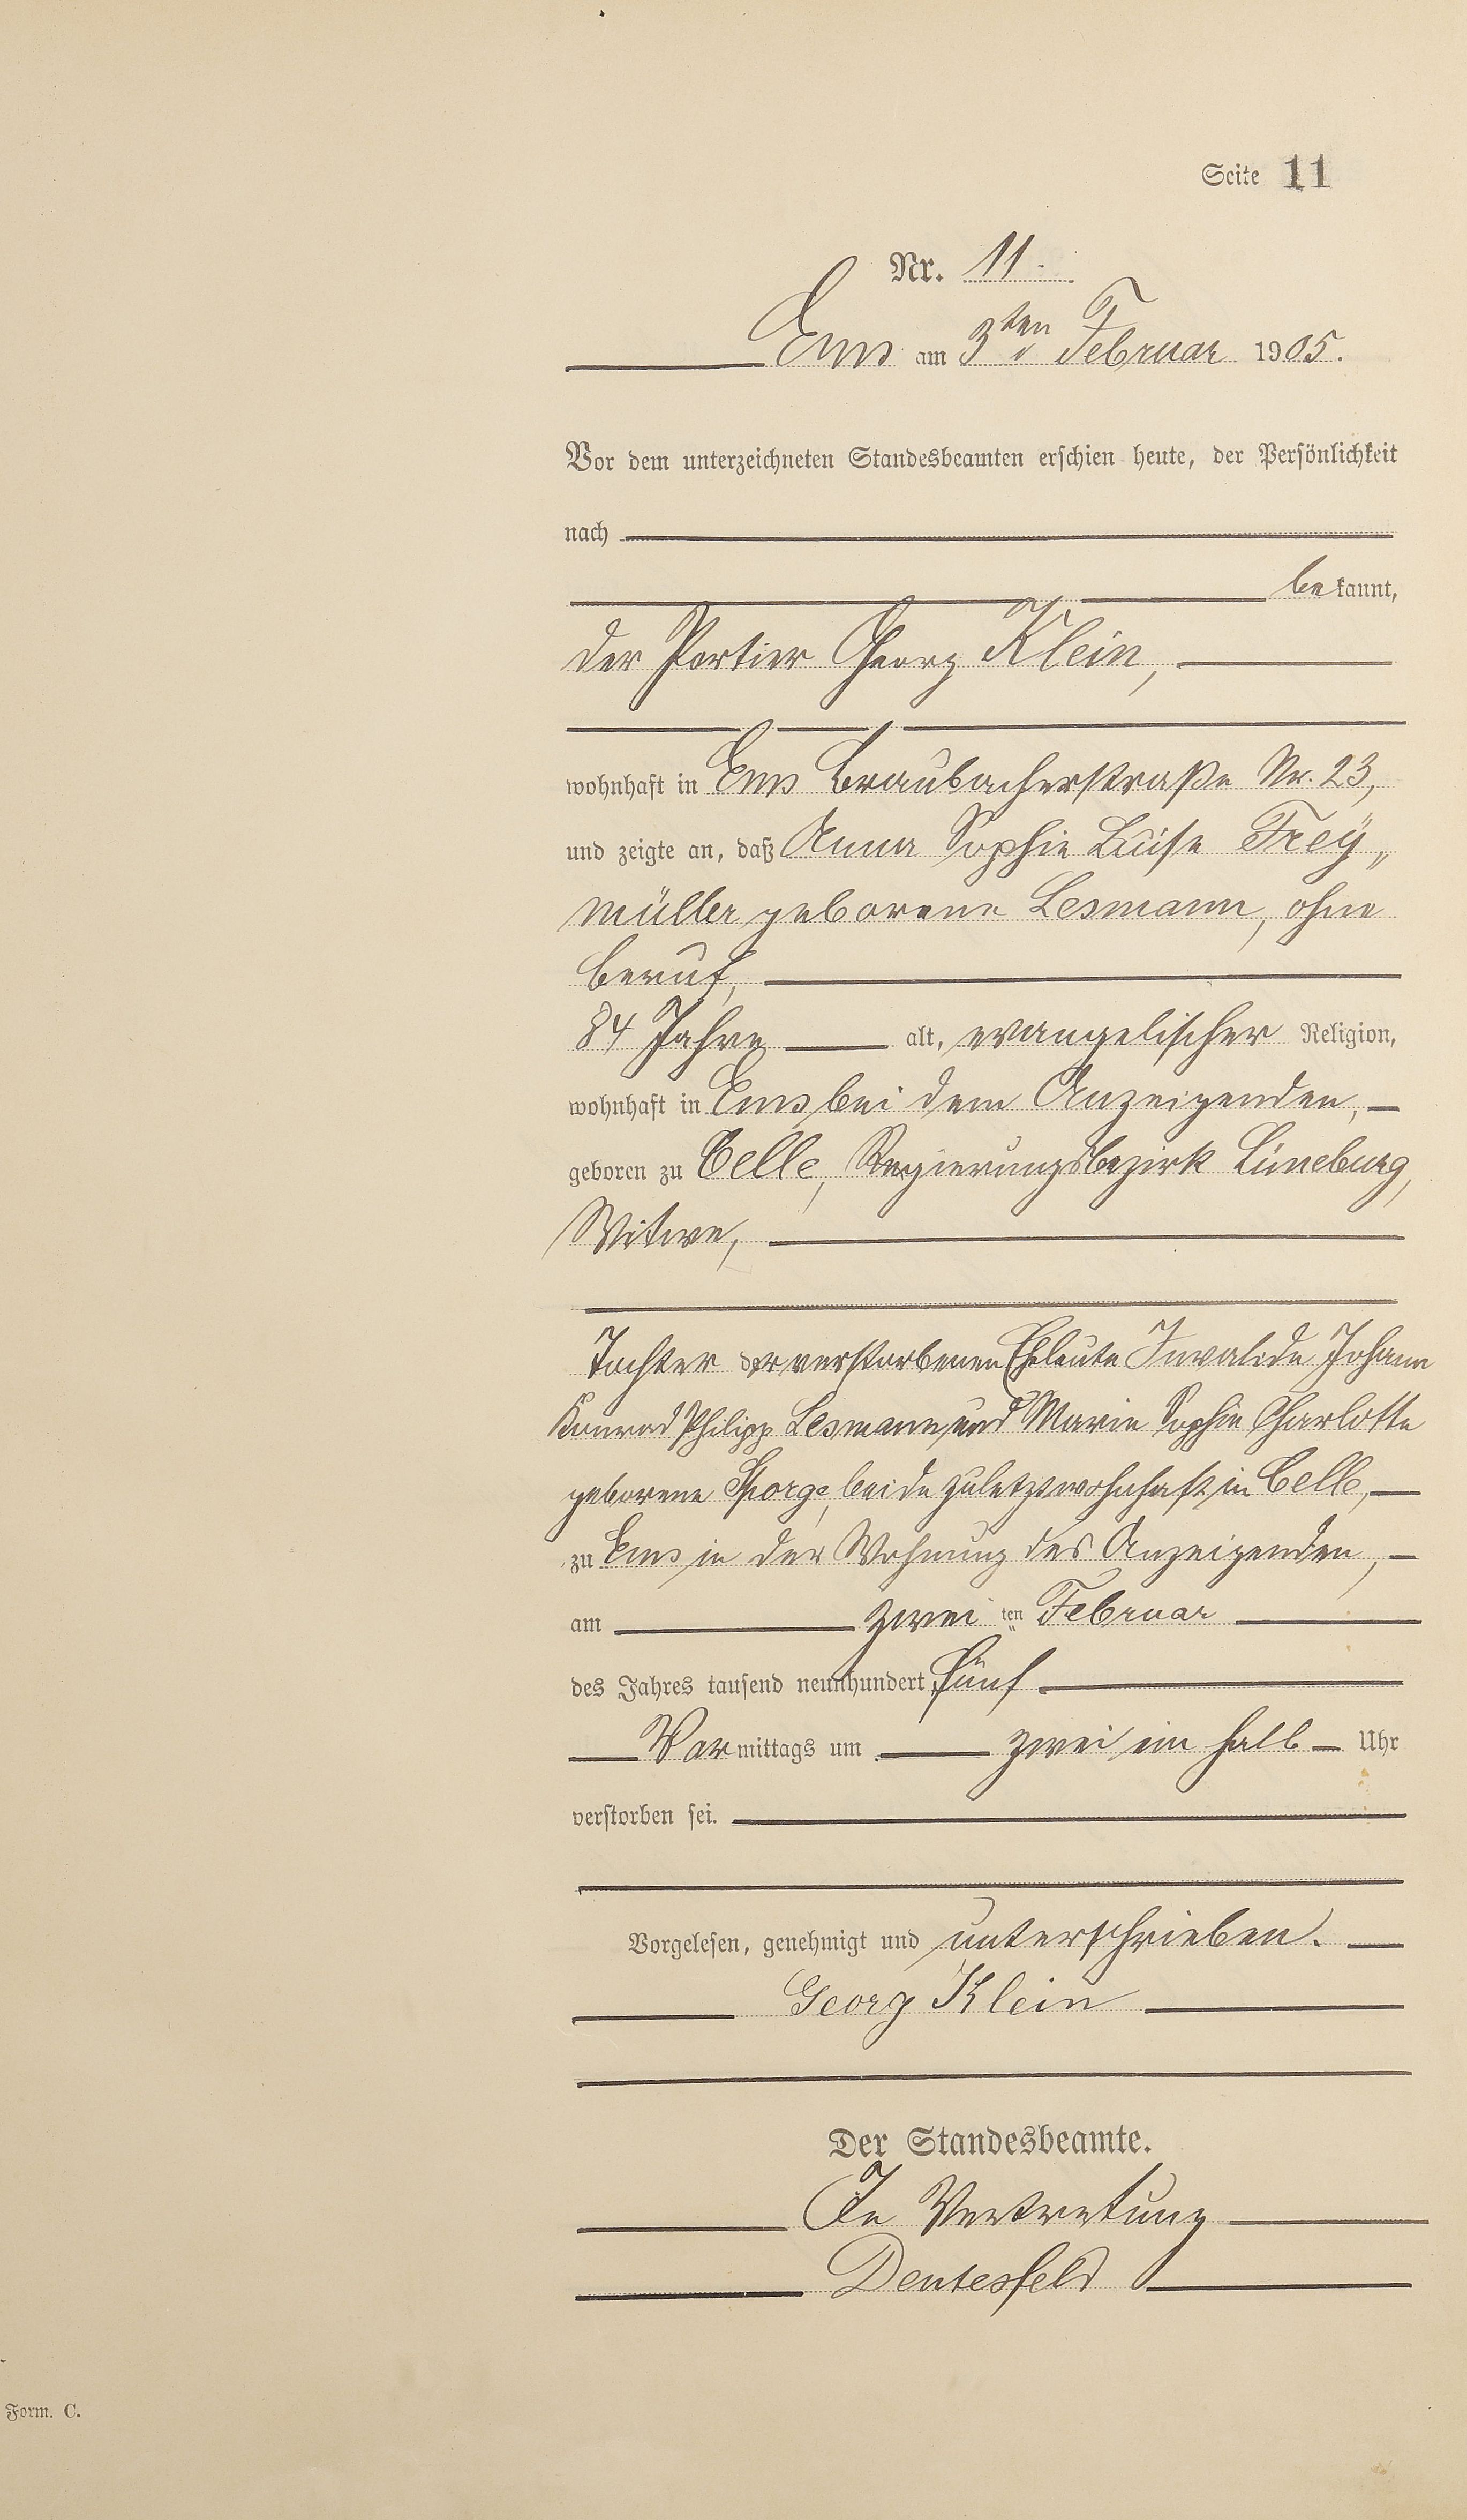 Seite 11
Nr. 11.
Ems am 3ten Februar 1905.
Vor dem unterzeichneten Standesbeamten erschien heute, der Persönlichkeit
nach
bekannt,
der Portier Georg Klein,
wohnhaft in Ems Braubacherstraße Nr. 23,
und zeigte an, daß Anna Sophie Luise Frey„
müller geborene Lesmann, ohne
Beruf,
84 Jahre alt, evangelischer Religion,
wohnhaft in Ems bei dem Anzeigenden,
geboren zu Celle, Regierungsbezirk Lüneburg,
Witwe,
Tochter der verstorbenen Eheleute Invalide Johann
Konrad Philipp Lesmann und Marie Sophie Charlotte
geborene beide zuletzt wohnhaft in Celle,
zu Ems in der Wohnung des Anzeigenden,
am zwei ten Februar
des Jahres tausend neunhundert fünf
Vormittags um zwei ein halb Uhr
verstorben sei.
Vorgelesen, genehmigt und unterschrieben.
Georg Klein
Der Standesbeamte.
In Vertretung
Form. C.